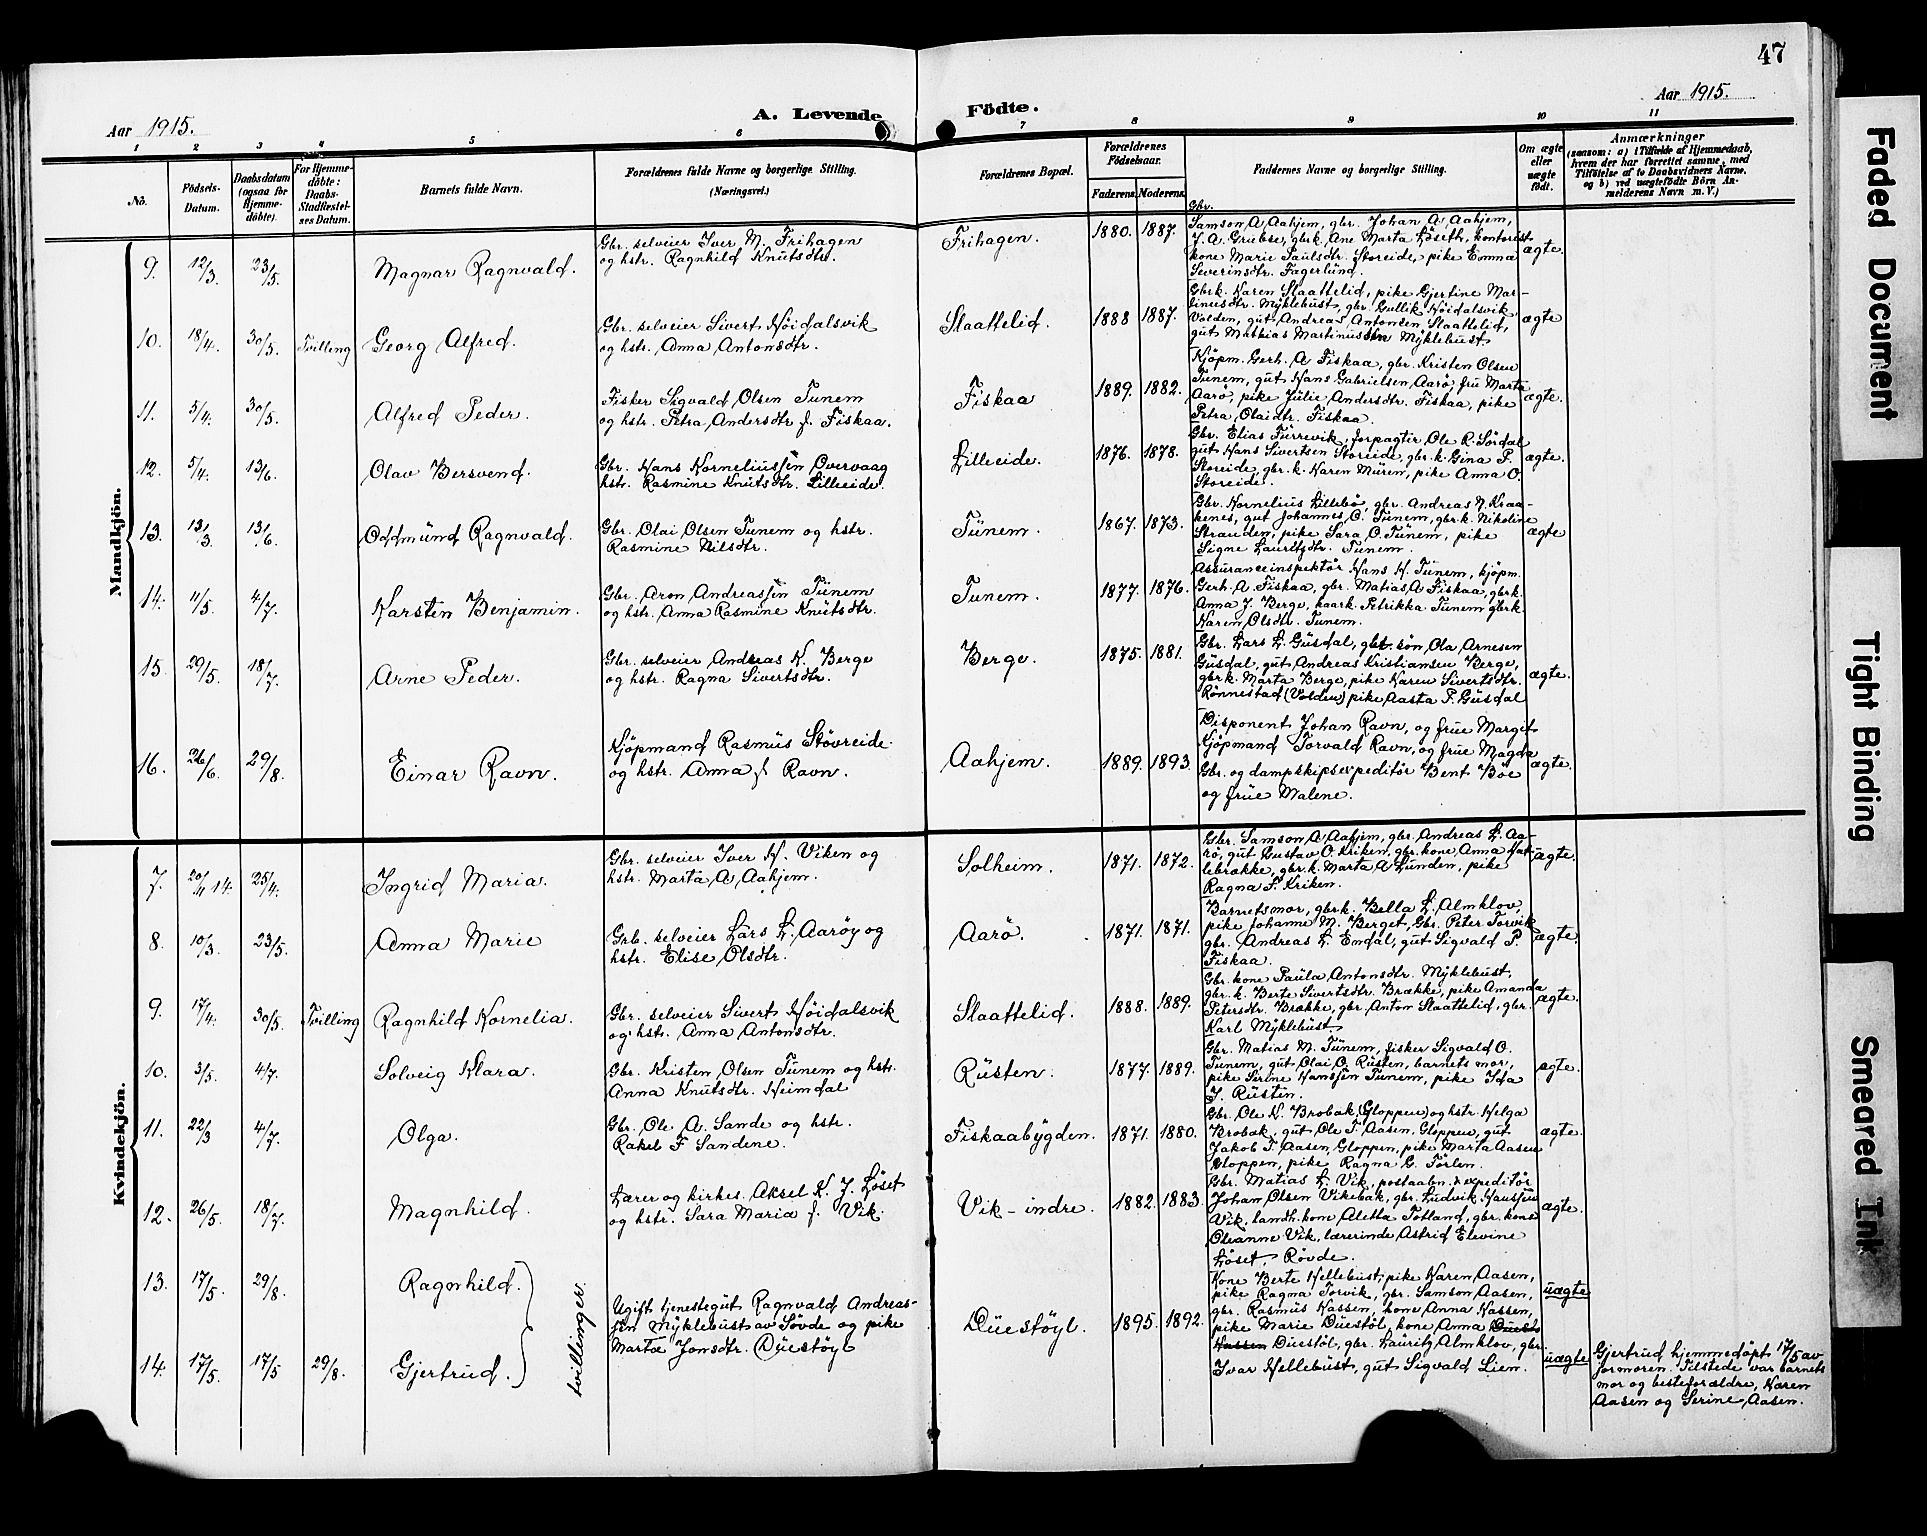 47
Aar 1915.
A. Levende Födte.
Aar 1915.
1 2 3 4 5 6 7 8 9 10 11
No.
Födsels-
Datum.
Daabsdatum
(ogsaa for
Hjemme-
döbte).
For Hjemme-
döbte:
Daabs-
Stadfæstel-
ses Datum.
Barnets fulde Navn.
Forældrenes fulde Navne og borgerlige Stilling.
(Næringsvei.)
Forældrenes Bopæl.
Forældrenes
Födselsaar.
Faderens. Moderens.
Faddernes Navne og borgerlige Stilling.
Om ægte
eller
uægte
födt.
Anmærkninger
(saasom: a) i Tilfælde af Hjemmedaab,
hvem der har forrettet samme, med
Tilföielse af to Daabsvidners Navne.
og b) ved uægtefödte Börn An-
melderens Navn m. V.)
Mandkjön.
9. 12/3 23/5. Magnar Ragnvald.
Gbr. selveier Iver M. Frihagen
og hstr. Ragnhild Knutsdtr.
Frihagen. 1880. 1887.
Gbr.
Samson A Aahjem, gbr. Johan A Aahjem,
J. A. Grubse, gbrk. Ane Marta Löseth, kontorist
kone Marie Paulsdtr. Storeide, pike Emma
Severinsdtr. Fagerlund.
ægte.
10. 18/4. 30/5. Tvilling Georg Alfred.
Gbr. selveier Sivert Höidalsvik
og hstr. Anna Antonsdtr.
Slaattelid. 1888 1887.
Gbrk. Karen Slaattelid, pike Gjertine Mar-
tinusdtr. Myklebust, gbr. Gullik Höidalsvik
Volden, gut Andreas Antonsen Slaattelid,
gut Mathias Martinussen Myklebust
ægte
11. 5/4. 30/5. Alfred Peder.
Fisker Sigvald Olsen Tunem
og hstr. Petra Andersdtr f. Fiskaa.
Fiskaa 1889. 1882.
Kjöpm. Gerh. A Fiskaa, gbr. Kristen Olsen
Tunem, gut Hans Gabrielsen Aarö, fru Marta
Aarö, pike Julie Andersdtr. Fiskaa, pike
Petra Olaidtr. Fiskaa.
ægte.
12. 5/4. 13/6. Olav Bersvend.
Gbr. Hans Korneliussen Overvaag
hstr. Rasmine Knutsdtr. Lilleeide.
Lilleeide. 1876. 1878.
Gbr. Elias Furrevik, forpagtir Ole R. Sördal
gut Hans Sivertsen Storeide, gbr.k. Gina P.
Storeide, gbr.k. Karen Muren, pike Anna O.
Storeide.
ægte.
13. 13/3. 13/6. Oddmund Ragnvald.
Gbr. Olai Olsen Tunem og hstr.
Rasmine Nilsdtr.
Tunem. 1867. 1873.
Gbr. Kornelius Lillebö, gbr. Andreas N. Kraa-
kenes, gut Johannes O. Tunem, gbr.k. Nikoline
Stranden, pike Sara O. Tunem, pike
Signe Lauritzdtr. Tunem.
ægte
14. 11/5. 4/7. Karsten Benjamin.
Gbr. Aron Andreassen Tunem
og hstr. Anna Rasmine Knutsdtr.
Tunem. 1877. 1876.
Assuranceinspektör Hans K. Tunem, kjöpm.
Gerh. A Fiskaa, gbr. Matias A Fiskaa, gbrk.
Anna J. Berge, haark. Petrikka Tunem gbrk.
Karen Olsdtr. Tunem.
15. 29/5. 18/7. Arne Peder.
Gbr. selveier Andreas K. Berge
og hstr. Ragna Sivertsdtr.
Berge. 1875. 1881.
Gbr. Lars L. Gusdal, gbr. sön Ola Arnesen
Gusdal, gut Andreas Kristiansen Berge,
gbrk. Marta Berge, pike Karen Sivertsdtr.
Rönnestad (Volden) pike Aasta P. Gusdal
ægte.
16. 26/6. 29/8. Einar Ravn.
Kjöpmand Rasmus Stövreide
og hstr. Anna f. Ravn.
Aahjem. 1889. 1893.
Disponent Johan Ravn, og frue Margit
Kjöpmand Torvald Ravn, og frue Magda
Gbr. og dampskipsexpeditör Bent Böe
og frue Malene.
ægte.
Kvindekjön.
7. 20/11 14. 25/4. Ingrid Maria.
Gbr. selveier Iver K. Viken og
hstr. Marta A Aahjem.
Solheim. 1871. 1872.
Gbr. Samson A Aahjem, gbr. Andreas L. Aa-
rö, gut Gustav O. Kriken, gbr. kone Anna Hak-
lebrække, gbr.k. Marta A Lunden, pike
Ragna F. Kriken.
ægte.
8. 10/3 23/5. Anna Marie
Grb. selveier Lars L. Aaröy og
hstr. Elise Olsdtr.
Aarö. 1871. 1871.
Barnetsmor, gbrk. Bella L. Almklov,
pike Johanne M. Berget, Gbr. Peter Torvik
gbr. Andreas L. Emdal, gut Sigvald P.
Fiskaa.
ægte.
9. 17/4. 30/5. Tvilling Ragnhild Kornelia.
Gbr. selveier Sivert Höidalsvik
og hstr. Anna Antonsdtr.
Slaattelid. 1888. 1889.
Gbr. kone Paula Antonsdtr. Myklebust,
gbr.k. Berte Sivertsdtr. Brække, pike Amanda
Petersdtr. Brække, gbr. Anton Slaattelid, gbr.
Karl Myklebust.
ægte.
10. 3/5. 4/7. Solveig Klara.
Gbr. Kristen Olsen Tunem og hstr.
Anna Knutsdtr. Heimdal
Rusten. 1877. 1889.
Gbr. Matias M. Tunem, fisker Sigvald O.
Tunem, gut Olai O. Rusten, barnets mor,
pike Serine Hanssen Tunem, pike Ida
J. Rusten.
ægte.
11. 22/3 4/7. Olga.
Gbr. Ole A. Sande og hstr.
Rakel F Sandene.
Fiskaabygden. 1871. 1880.
Gbr. Ole K. Brobak, (Gloppen) og hstr. Helga
Brobak, gut Ole T. Aasen, Gloppen, gut
Jakob T. Aasen, Gloppen, pike Marta Aasen
Gloppen, pike Ragna G. Törlen.
ægte.
12. 26/5. 18/7. Magnhild.
Lærer og kirkes. Aksel K. J. Löset
og hstr. Sara Maria f. Vik.
Vik-indre. 1882. 1883.
Gbr. Matias L. Vik, postaabn. & expeditör
Johan Olsen Vikebak, gbr. Ludvik Hanssen
Vik, landh. kone Aletta Totland, gbr. kone
Oleanne Vik, lærerinde Astrid Elevine
Löset, Rövde.
ægte.
13. 17/5. 29/8. Ragnhild.
14. 17/5. 17/5 29/8. Gjertrud.
tvillinger.
Ugift tjenestegut Ragnvald Andreas-
sen Myklebust av Sövde og pike
Marta Jonsdtr. Duestöyl
Duestöyl. 1895. 1892.
Kone Berte Hellebust, pike Karen Aasen,
pike Ragna Torvik, gbr. Samson Aasen,
gbr. Rasmus Hassen, kone Anna Hassen,
pike Marie Duestöl, kone Anna
Duestöl, gbr. Lauritz Almklov, gbr.
Ivar Hellebust, gut Sigvald Lien.
uægte
uægte
Gjertrud hjemmedöpt 17/5 av
formoren. Tilstede var barnets
mor og besteforældre, Karen
Aasen og Serine Aasen.
Faded Document
Tight Binding
Smeared Ink